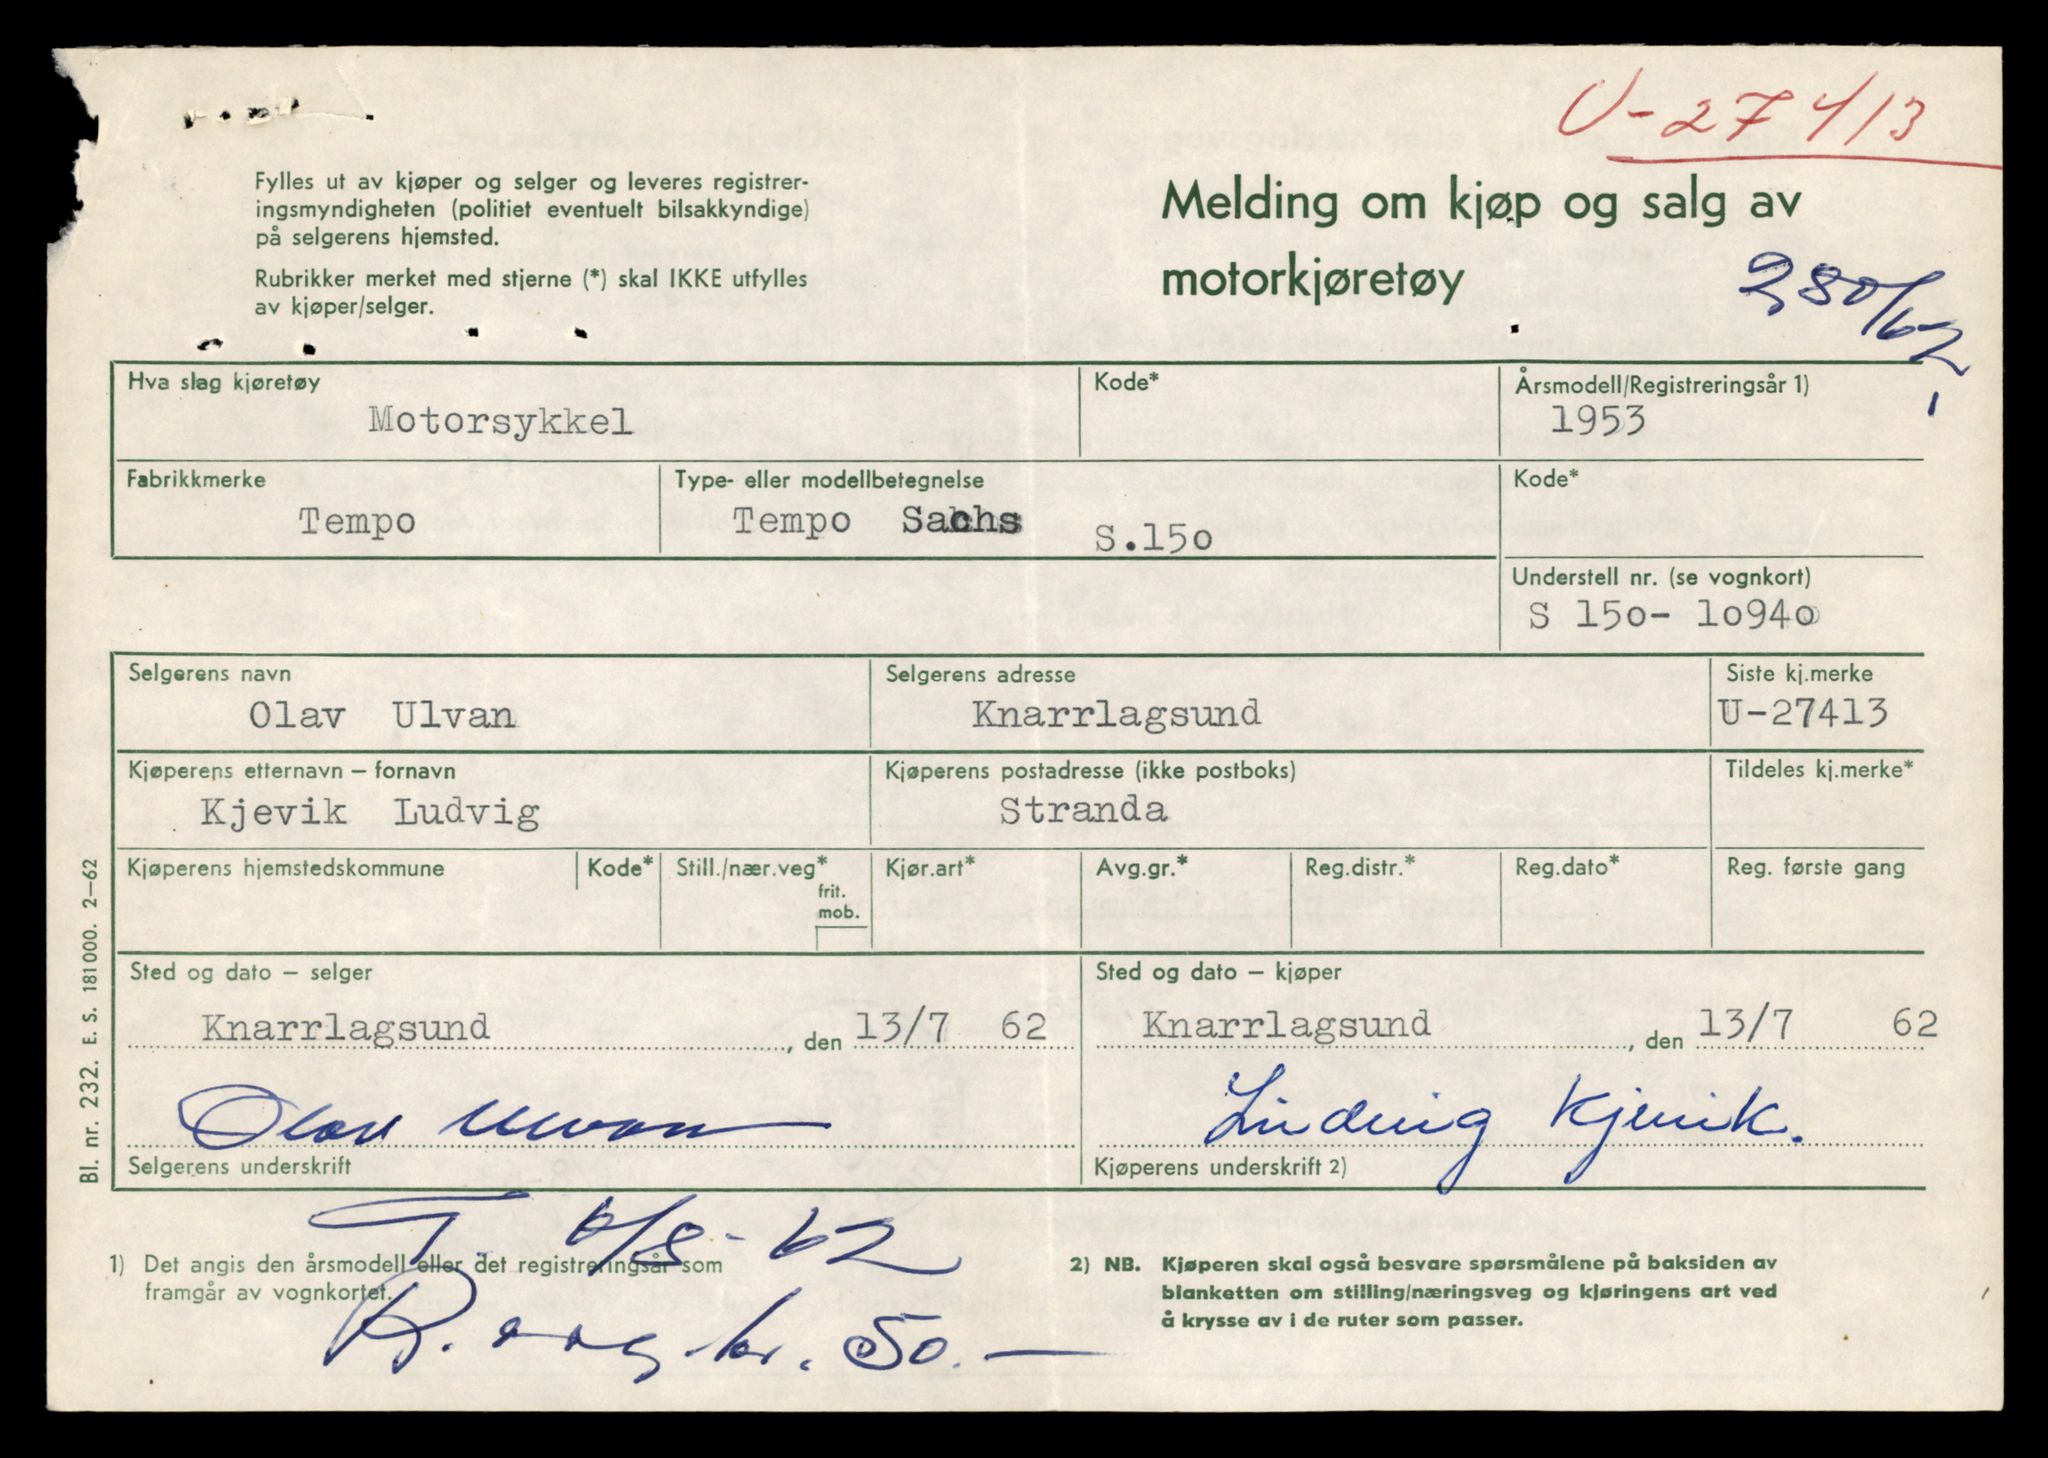 U-27413
Fylles ut av kjøper og selger og leveres registrer-
ingsmyndigheten (politiet eventuelt bilsakkyndige)
på selgerens hjemsted.
Rubrikker merket med stjerne (*) skal IKKE utfylles
av kjøper/selger.
Melding om kjøp og salg av
motorkjøretøy
280/62
Hva slag kjøretøy
Motorsykkel
Kode*
Årsmodell/Registreringsår 1)
1953
Fabrikkmerke
Tempo
Type- eller modellbetegnelse
Tempo Sachs S.150
Kode*
Understell nr. (se vognkort)
S 150- 10940
Selgerens navn
Olav Ulvan
Selgerens adresse
Knarrlagsund
Siste kj.merke
U-27413
Kjøperens etternavn – fornavn
Kjevik Ludvig
Kjøperens postadresse (ikke postboks)
Stranda
Tildeles kj.merke*
Kjøperens hjemstedskommune
Kode*
Still./nær.veg*
frit.
mob.
Kjør.art*
Avg.gr.*
Reg.distr.*
Reg.dato*
Reg. første gang
Sted og dato – selger
Knarrlagsund, den 13/7 62
Olav Ulvan
Selgerens underskrift
Sted og dato – kjøper
Knarrlagsund, den 13/7 62
Ludvig Kjevik.
Kjøperens underskrift 2)
T. 6/8-62
kr. 50.—
1) Det angis den årsmodell eller det registreringsår som
framgår av vognkortet.
2) NB. Kjøperen skal også besvare spørsmålene på baksiden av
blanketten om stilling/næringsveg og kjøringens art ved
å krysse av i de ruter som passer.
Bl. nr. 232. E. S. 181 000. 2–62